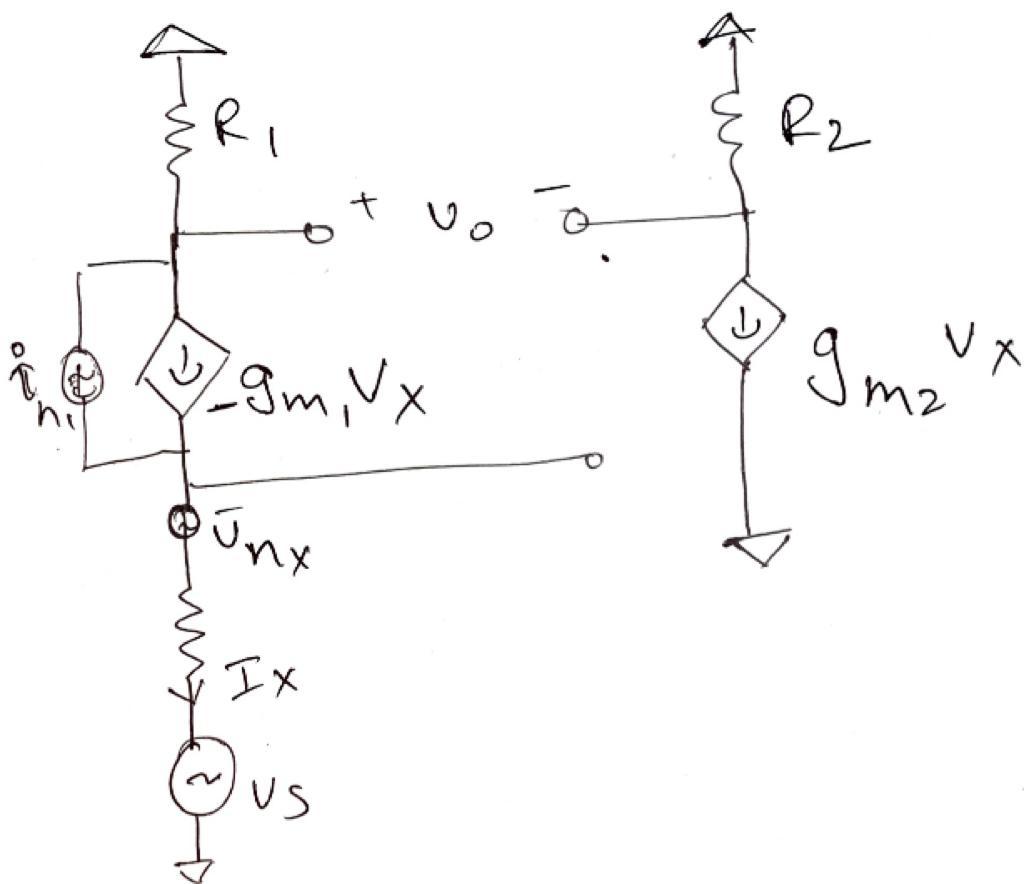 R1
R2
+ vo -
in1
-gm1Vx
gm2Vx
vnx
Ix
vs